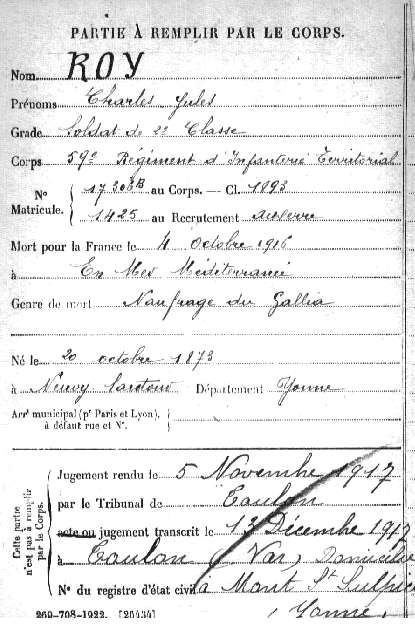 PARTIE À REMPLIR PAR LE CORPS.
Nom ROY
Prénoms Charles Jules
Grade Soldat de 2e Classe
Corps 59e Régiment d'Infanterie Territorial
N° Matricule. 17308B au Corps. — Cl. 1893
1425 au Recrutement Auxerre
Mort pour la France le 4 octobre 1916
à En Mer Méditerranée
Genre de mort Naufrage du Gallia
Né le 20 octobre 1873
à Neuvy Sautour Département Yonne
Arr' municipal (p' Paris et Lyon),
à défaut rue et N°.
Cette partie n'est pas à remplir par le Corps.
Jugement rendu le 5 Novembre 1917
par le Tribunal de Toulon
acte ou jugement transcrit le 13 Décembre 1917
à Toulon (Var) Domicilié
N° du registre d'état civil à Mont St Sulpice
(Yonne)
269-708-1922. [26434]